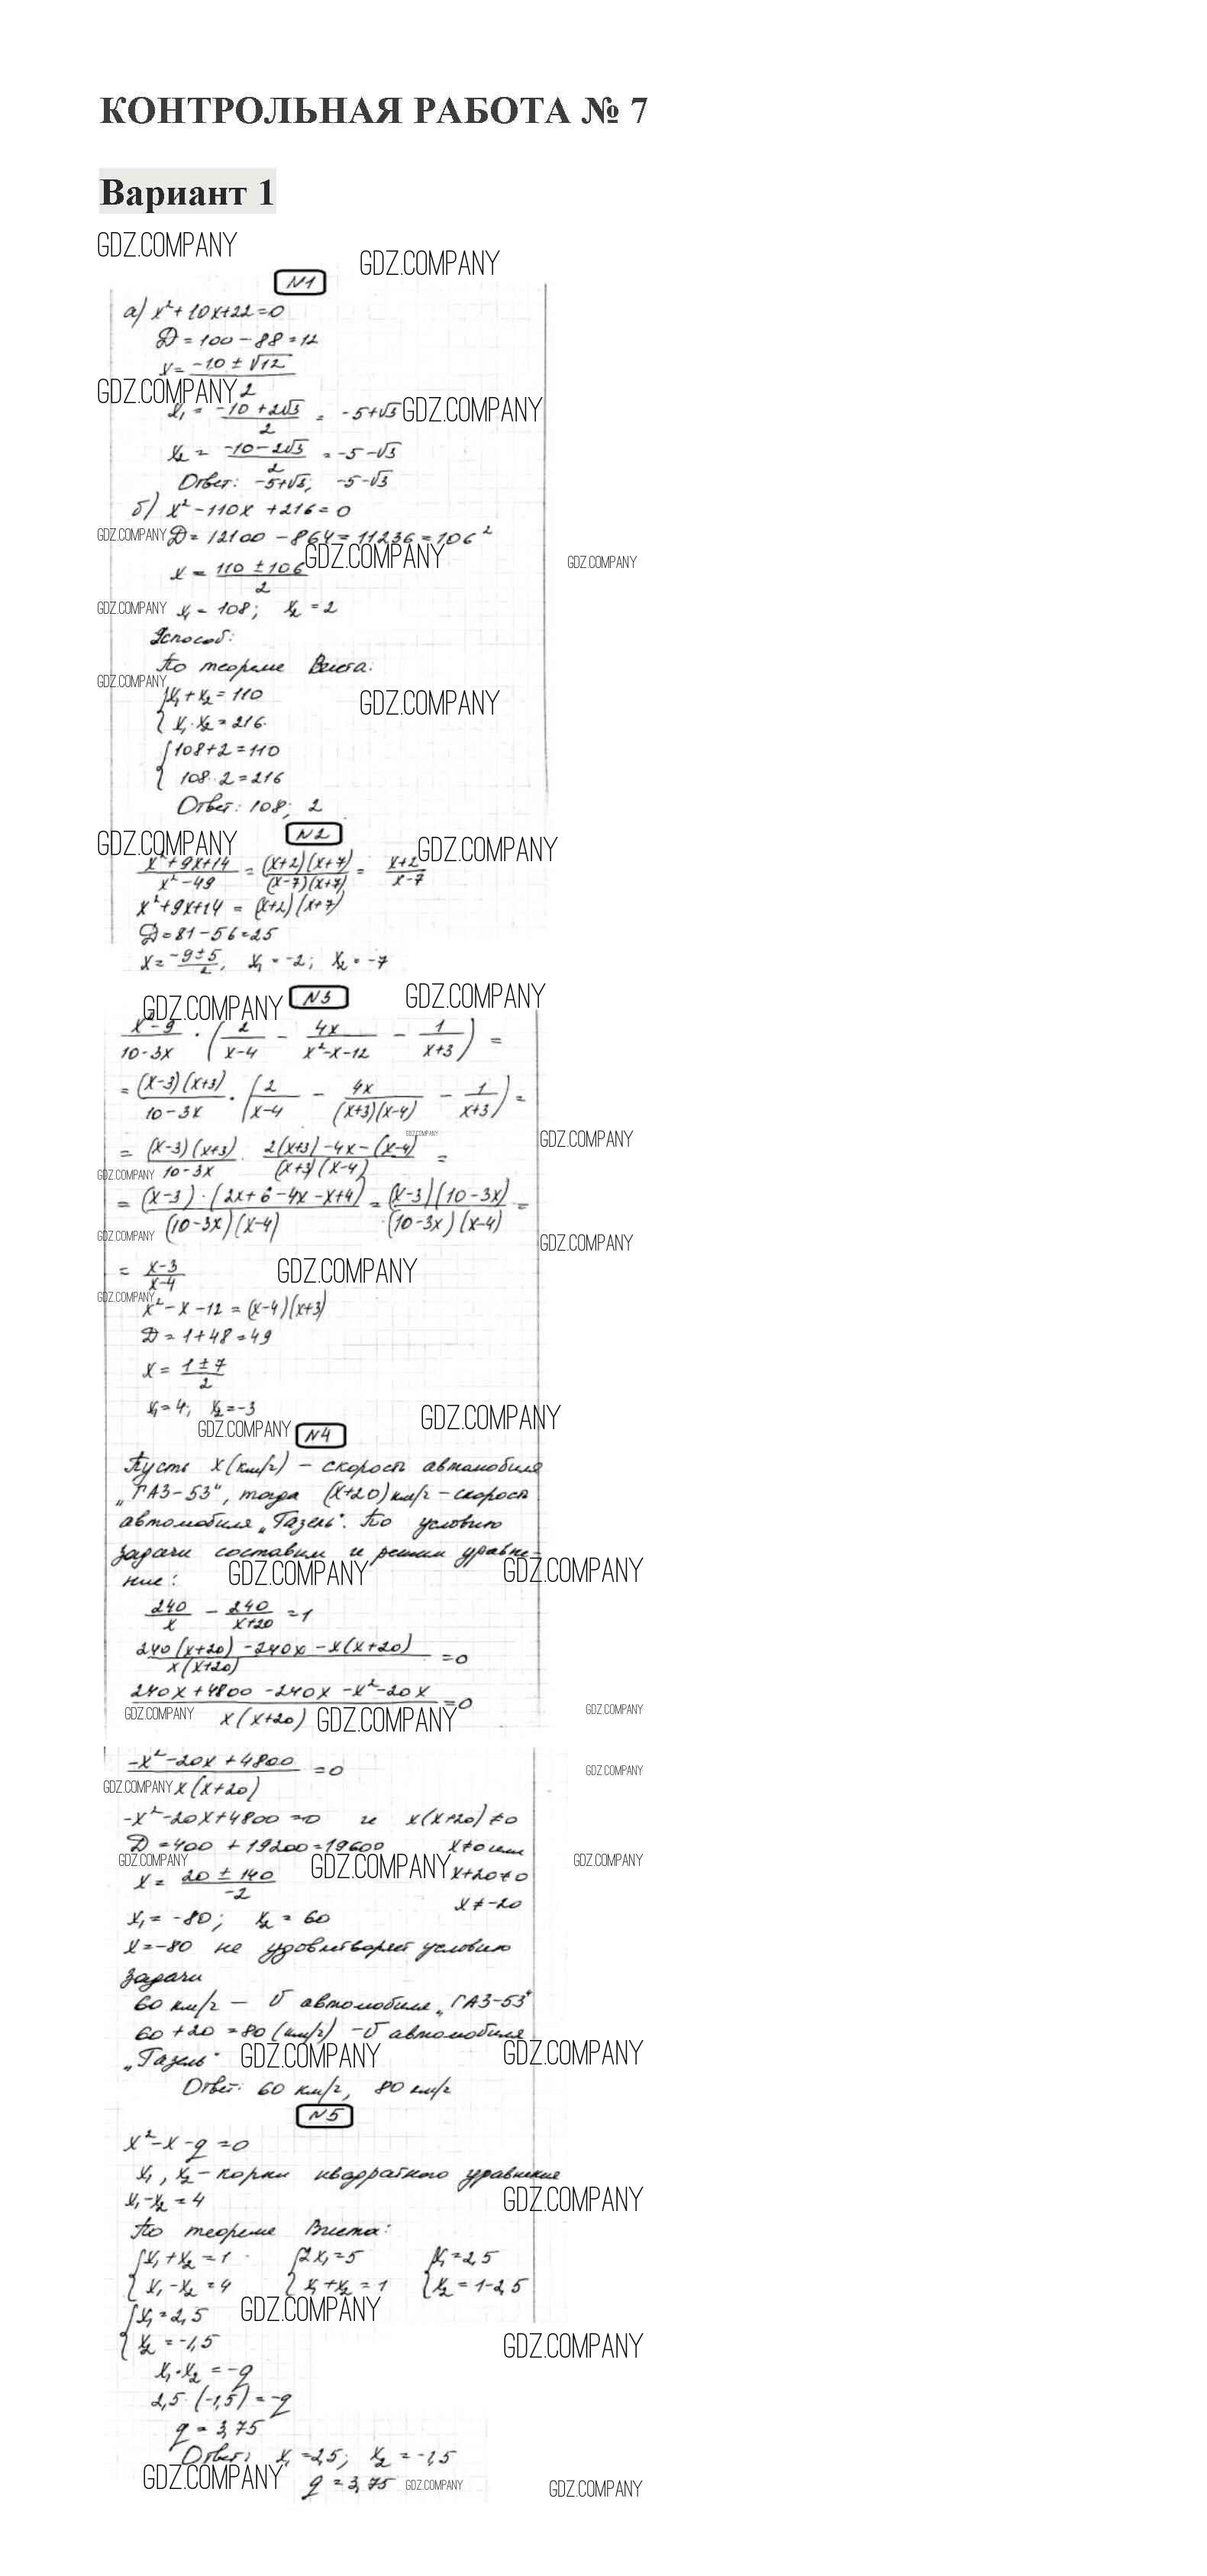 КОНТРОЛЬНАЯ РАБОТА № 7
Вариант 1
GDZ.COMPANY
GDZ.COMPANY
N1
а) x²+10x+22=0
D = 100 - 88 = 12
x = (-10 ± √12)/2
GDZ.COMPANY
x₁ = (-10 + 2√3)/2 = -5+√3
GDZ.COMPANY
x₂ = (-10 - 2√3)/2 = -5-√3
Ответ: -5+√3; -5-√3
б) x² - 110x + 216 = 0
GDZ.COMPANY
D = 12100 - 864 = 11236 = 106²
GDZ.COMPANY
GDZ.COMPANY
x = (110 ± 106)/2
GDZ.COMPANY
x₁ = 108; x₂ = 2
2способ:
По теореме Виета:
GDZ.COMPANY
{x₁ + x₂ = 110
GDZ.COMPANY
{x₁ · x₂ = 216
{108+2=110
{108·2=216
Ответ: 108; 2
GDZ.COMPANY
N2
GDZ.COMPANY
(x²+9x+14)/(x²-49) = (x+2)(x+7)/(x-7)(x+7) = (x+2)/(x-7)
x²+9x+14 = (x+2)(x+7)
D=81-56=25
x = (-9±5)/2, x₁ = -2; x₂ = -7
GDZ.COMPANY
N3
GDZ.COMPANY
(x²-9)/(10-3x) · (2/(x-4) - 4x/(x²-x-12) - 1/(x+3)) =
= (x-3)(x+3)/(10-3x) · (2/(x-4) - 4x/((x+3)(x-4)) - 1/(x+3)) =
GDZ.COMPANY
GDZ.COMPANY
= (x-3)(x+3)/(10-3x) · (2(x+3)-4x-(x-4))/((x+3)(x-4)) =
GDZ.COMPANY
= (x-3)·(2x+6-4x-x+4)/((10-3x)(x-4)) = (x-3)(10-3x)/((10-3x)(x-4)) =
GDZ.COMPANY
GDZ.COMPANY
= (x-3)/(x-4)
GDZ.COMPANY
GDZ.COMPANY
x²-x-12 = (x-4)(x+3)
D = 1+48=49
x = (1±7)/2
x₁=4; x₂=-3
GDZ.COMPANY
GDZ.COMPANY
N4
Пусть x(км/ч) - скорость автомобиля
„ГАЗ-53", тогда (x+20)км/ч - скорость
автомобиля „Газель". По условию
задачи составим и решим уравне-
GDZ.COMPANY
GDZ.COMPANY
ние:
240/x - 240/(x+20) = 1
(240(x+20) - 240x - x(x+20))/(x(x+20)) = 0
(240x+4800-240x-x²-20x)/(x(x+20)) = 0
GDZ.COMPANY
GDZ.COMPANY
GDZ.COMPANY
(-x²-20x+4800)/(x(x+20)) = 0
GDZ.COMPANY
GDZ.COMPANY
-x²-20x+4800=0 и x(x+20)≠0
D = 400 + 19200=19600 x≠0 или
GDZ.COMPANY
GDZ.COMPANY
GDZ.COMPANY
x = (20 ± 140)/(-2) x+20≠0
x≠-20
x₁ = -80; x₂ = 60
x=-80 не удовлетворяет условию
задачи
60 км/ч - υ автомобиля „ГАЗ-53"
60+20=80(км/ч) - υ автомобиля
„Газель"
GDZ.COMPANY
GDZ.COMPANY
Ответ: 60 км/ч, 80 км/ч
N5
x²-x-q=0
x₁, x₂ - корни квадратного уравнения
x₁-x₂=4
GDZ.COMPANY
По теореме Виета:
{x₁+x₂=1 {2x₁=5 {x₁=2,5
{x₁-x₂=4 {x₁+x₂=1 {x₂=1-2,5
{x₁=2,5
GDZ.COMPANY
{x₂=-1,5
GDZ.COMPANY
x₁·x₂ = -q
2,5·(-1,5) = -q
q = 3,75
Ответ: x₁=2,5; x₂=-1,5
GDZ.COMPANY
q = 3,75
GDZ.COMPANY
GDZ.COMPANY